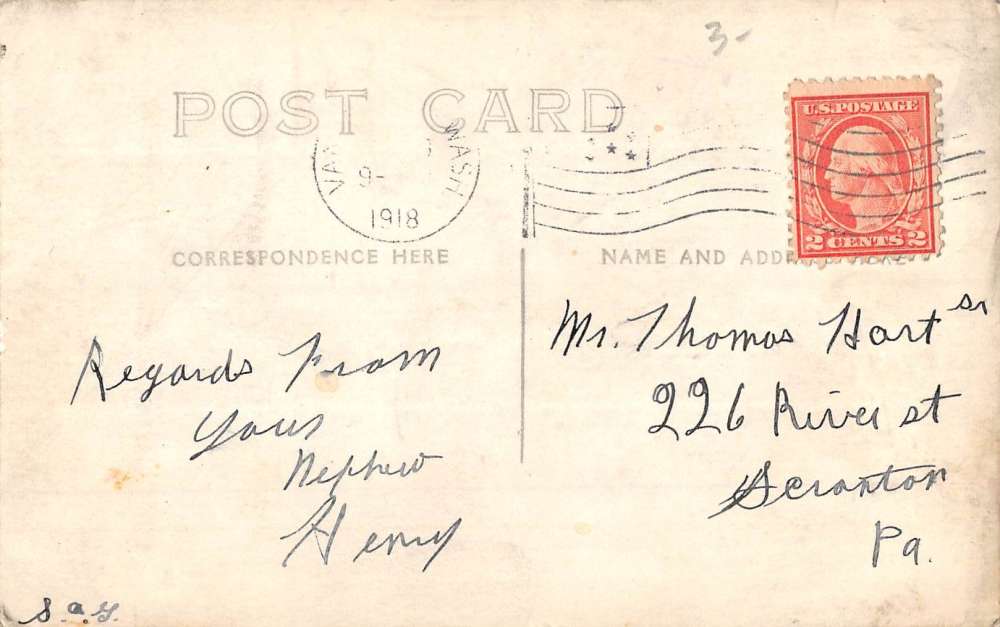 3-
POST CARD
U.S. POSTAGE
2 CENTS 2
VAN WASH
9-
1918
CORRESPONDENCE HERE
NAME AND ADDRESS HERE
Regards From
Your
Nephew
Henry
Mr. Thomas Hart Sr
226 River st
Scranton
Pa.